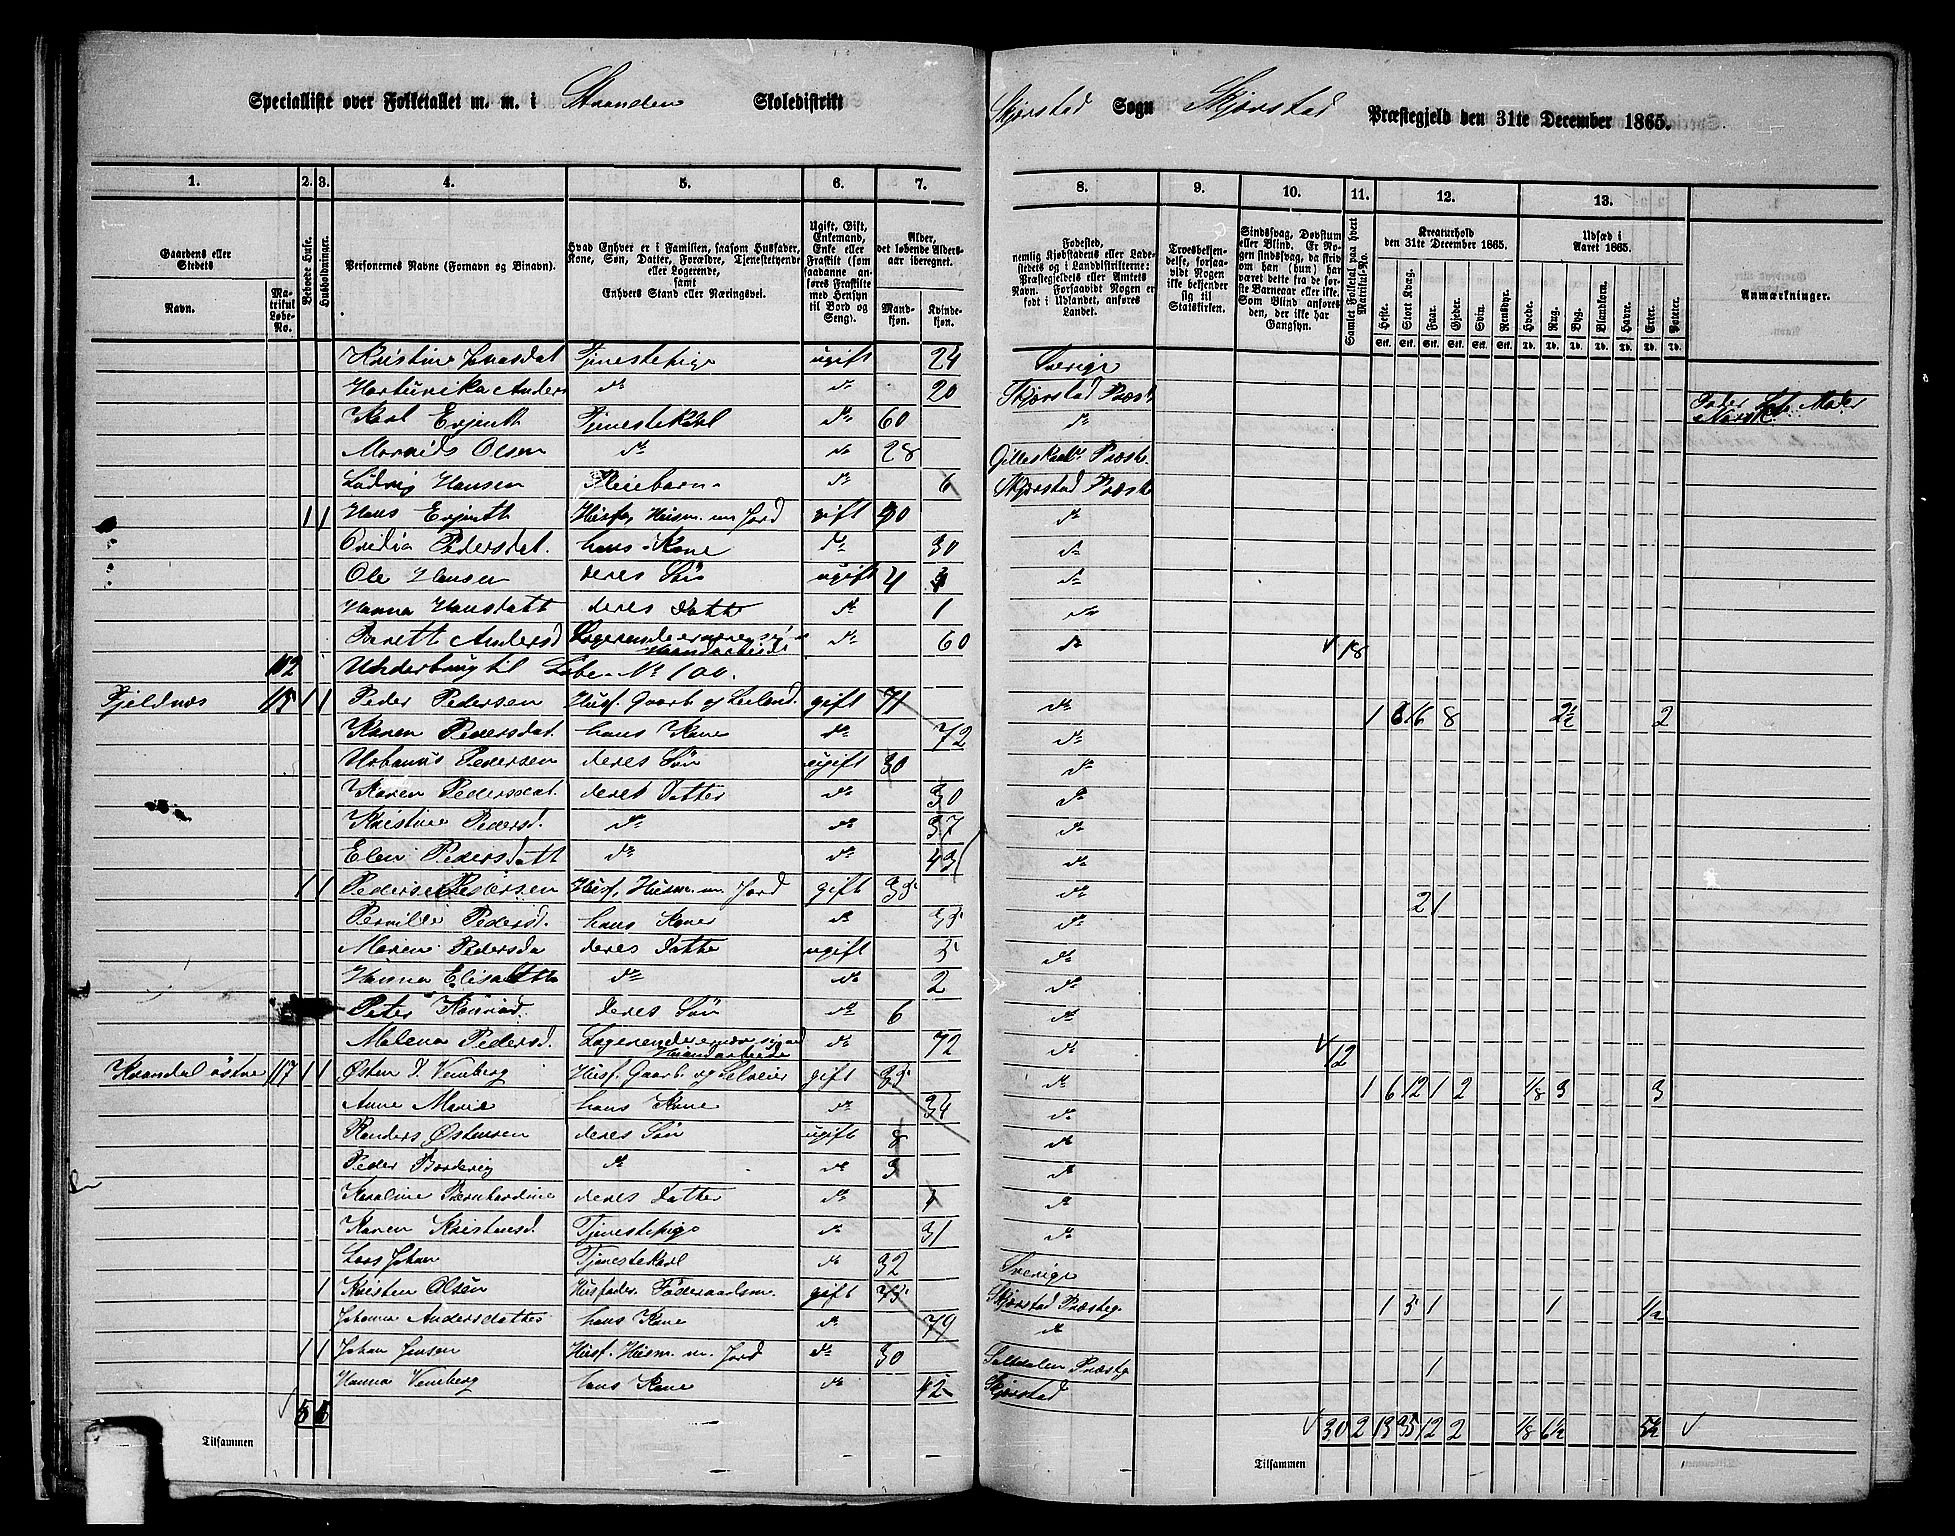 Specialliste over Folketallet m. m. i Stranden Skoledistrikt
Skjerstad Sogn Skjerstad Præstegjeld den 31te December 1865.
1. 2. 3. 4. 5. 6. 7. 8. 9. 10. 11. 12. 13.
Gaardens eller Stedets Navn.
Matrikul Løbe-No.
Beboede Huse.
Husholdninger.
Personernes Navne (Fornavn og Binavn).
Hvad Enhver er i Familien, saasom Husfader, Kone, Søn, Datter, Forældre, Tjenestetyende eller Logerende, samt Enhvers Stand eller Næringsvei.
Ugift, Gift, Enkemand, Enke eller Fraskilt (som saadanne anføres Fraskilte med Hensyn til Bord og Seng).
Alder, det løbende Alders-aar iberegnet.
Mandkjøn. Kvindekjøn.
Fødested, nemlig Kjøbstadens eller Ladestedets og i Landdistrikterne: Præstegjeldets eller Amtets Navn. Forsaavidt Nogen er født i Udlandet, anføres Landet.
Troesbekjendelse, forsaavidt Nogen ikke bekjender sig til Statskirken.
Sindssvag, Døvstum eller Blind. Er Nogen sindssvag, da skrives om han (hun) har været dette fra de første Barneaar eller ikke. Som Blind anføres den, der ikke har Gangsyn.
Samlet Folketal paa hvert Matrikul-No.
Kreaturhold den 31te December 1865.
Heste. Stort Kvæg. Faar. Gjeder. Svin. Rensdyr.
Udsæd i Aaret 1865.
Hvede. Rug. Byg. Blandkorn. Havre. Erter. Poteter.
Anmærkninger.
Kristine Jonasdat Tjenestepige ugift 24 Sverige
Anders do do 20 Skjerstad Præst
Karl Evjenth Tjenestekarl do 60 do
Olsen do do 28 Gilleskaal Præste
Ludvig Hansen Pleiebarn do 6 Skjerstad Præste
1 1 Hans Evjenth Husf. Husm. m. Jord gift 30 do
Ovedia Pedersdat. hans Kone do 30 do
Ole Hansen deres Søn ugift 4 do
Hanna Hansdatt deres Datt do 1 do
Berett Andersd Logerende do 60 do 18
112 Underbrug til Løbe No 100.
Fjeldnes 115 1 1 Peder Pedersen Husf. Gaarb og Leilend. gift 71 do 1 6 16 8 2½ 2
Karen Pedersdat hans Kone do 72 do
Urbanus Pedersen deres Søn ugift 30 do
Karen Pedersdat. deres Datter do 30 do
Kristine Pedersd. do do 37 do
Elen Pedersdatt do do 43 do
1 1 Peder Pedersen Husf. Husm. m. Jord gift 35 do 2 1
Pernille Pedersd. hans Kone do 35 do
Maren Pedersda deres Datte ugift 5 do
Hanna Elisabeth do do 2 do
Peter Konrad deres Søn do 6 do
Malena Pedersd. Logerende Haandarbeide do 72 do 12
Kvandal østre 117 1 1 Østen P. Venberg Husf. Gaarb. og Selveier gift 35 do 1 6 12 1 2 1/8 3 3
Anne Marie hans Kone do 34 do
Randers Østensen deres Søn ugift 8 do
Peder do do 3 do
Karoline Bernhardine deres Datter do 1 do
Karen Kristensd. Tjenestepige do 31 do
Lars Johan Tjenestekarl do 32 Sverige
1 Kristen Olsen Husfader Føderaadsm. gift 75 Skjerstad Præsteg 1 5 1 1 1/2
Johanna Andersdatter hans Kone do 79 do
1 1 Johan Jensen Husf. Husm. m. Jord do 30 Saltdalen Præstg 1
Hanna Venberg hans Kone do 42 Skjerstad
Tilsammen 30 2 13 35 12 2 1/8 6½ 5½
Tilsammen